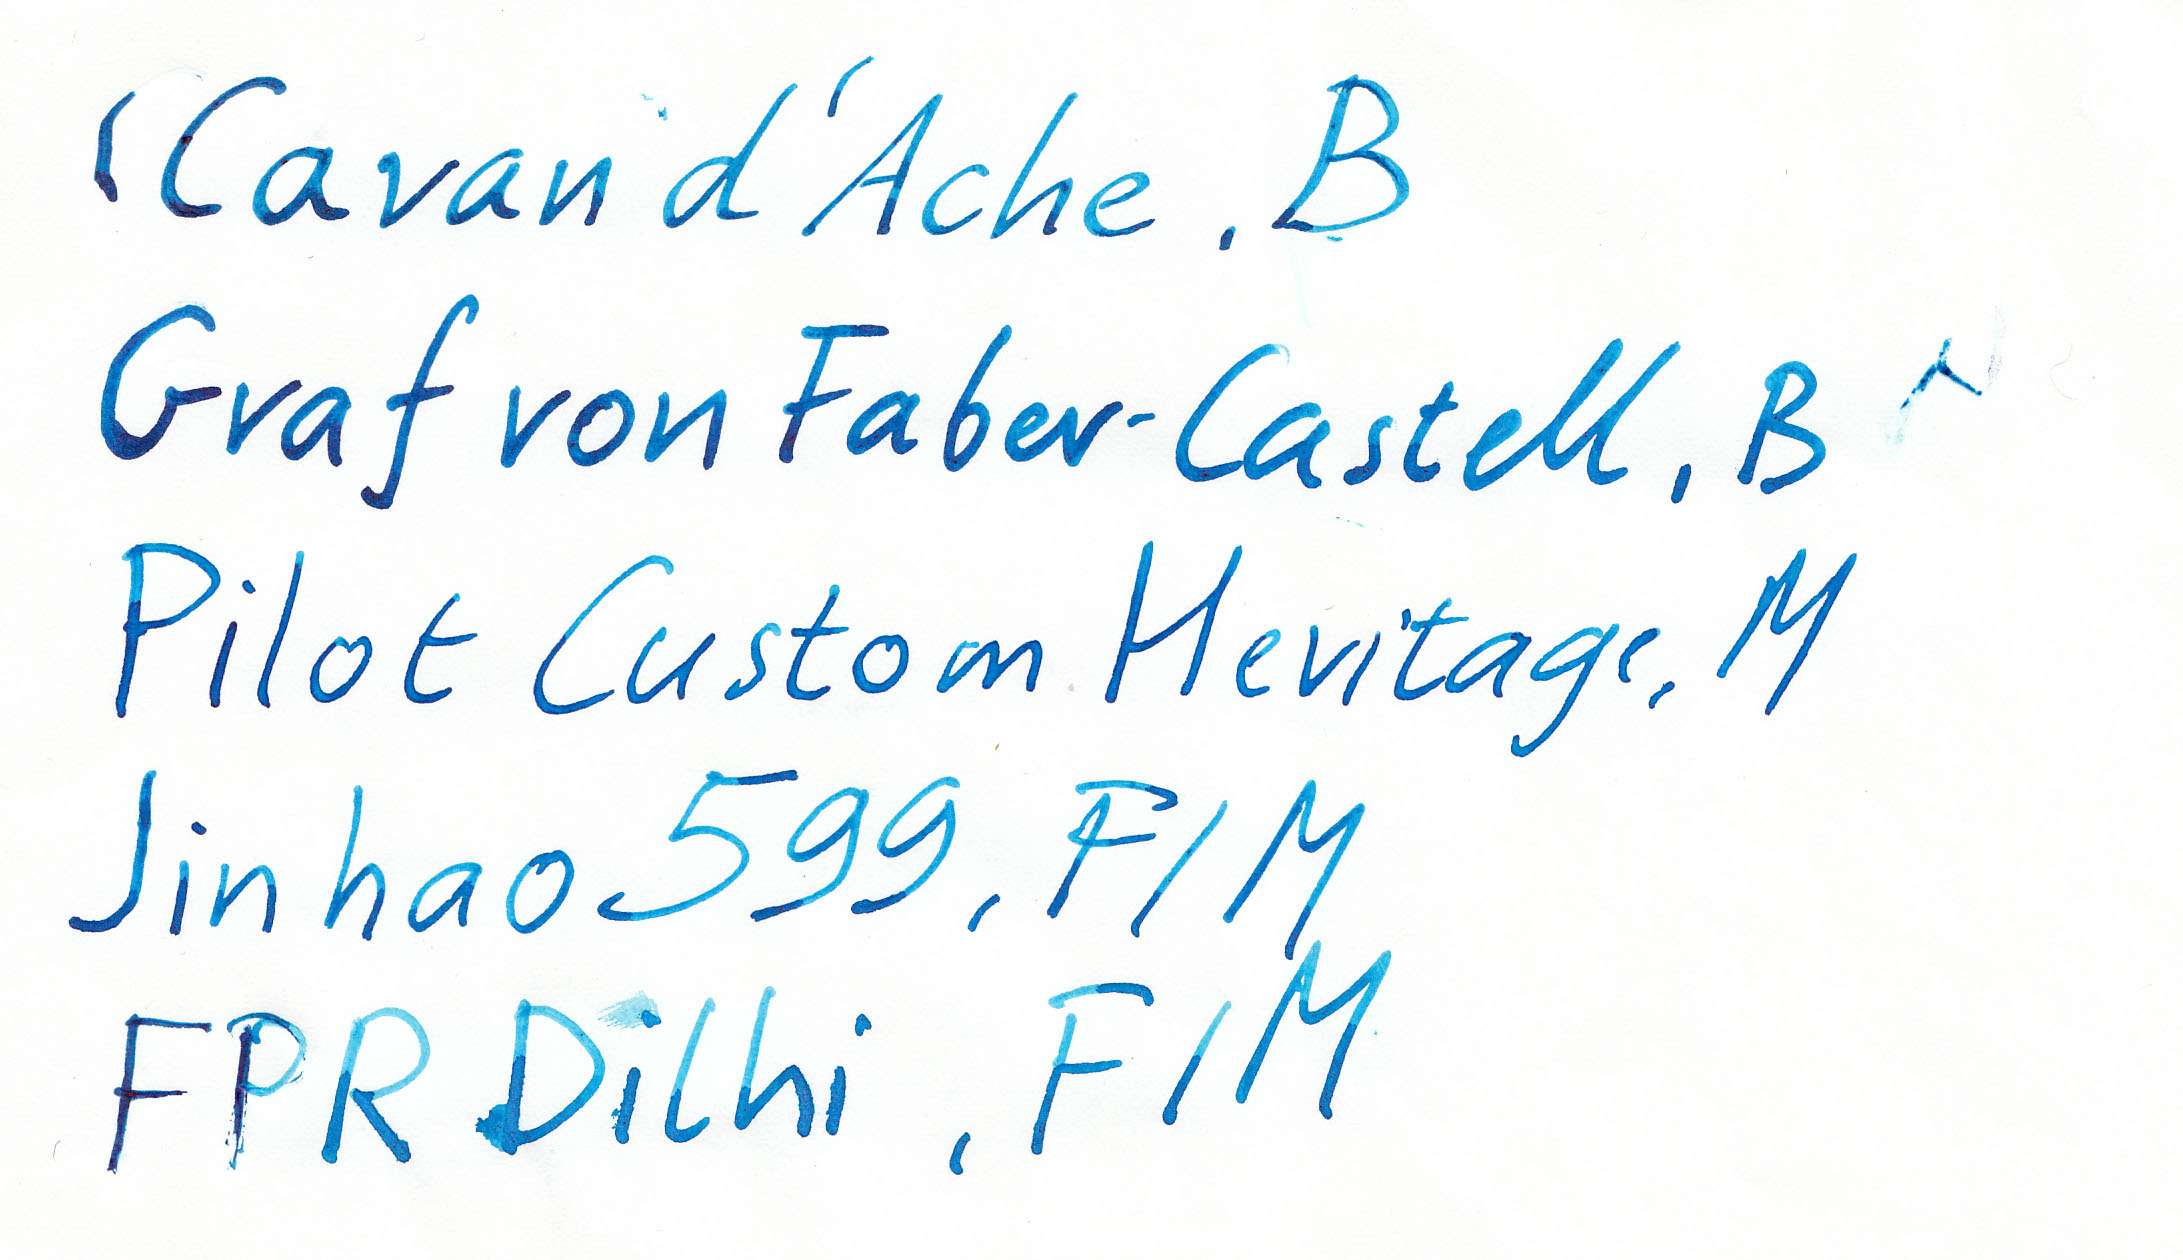 Caran d'Ache, B
Graf von Faber-Castell, B
Pilot Custom Heritage, M
Jinhao 599, F/M
FPR Dilhi, F/M